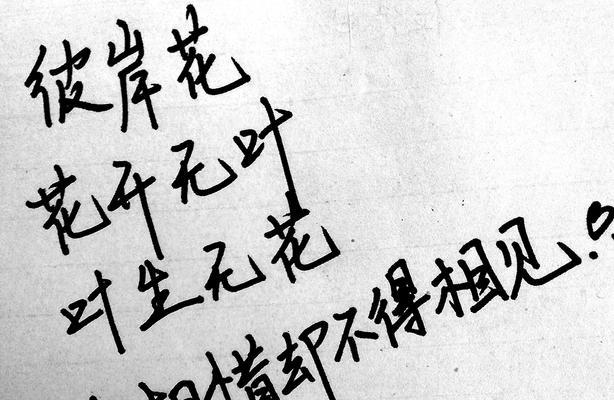 彼岸花
花开无叶
叶生无花
相惜却不得相见。